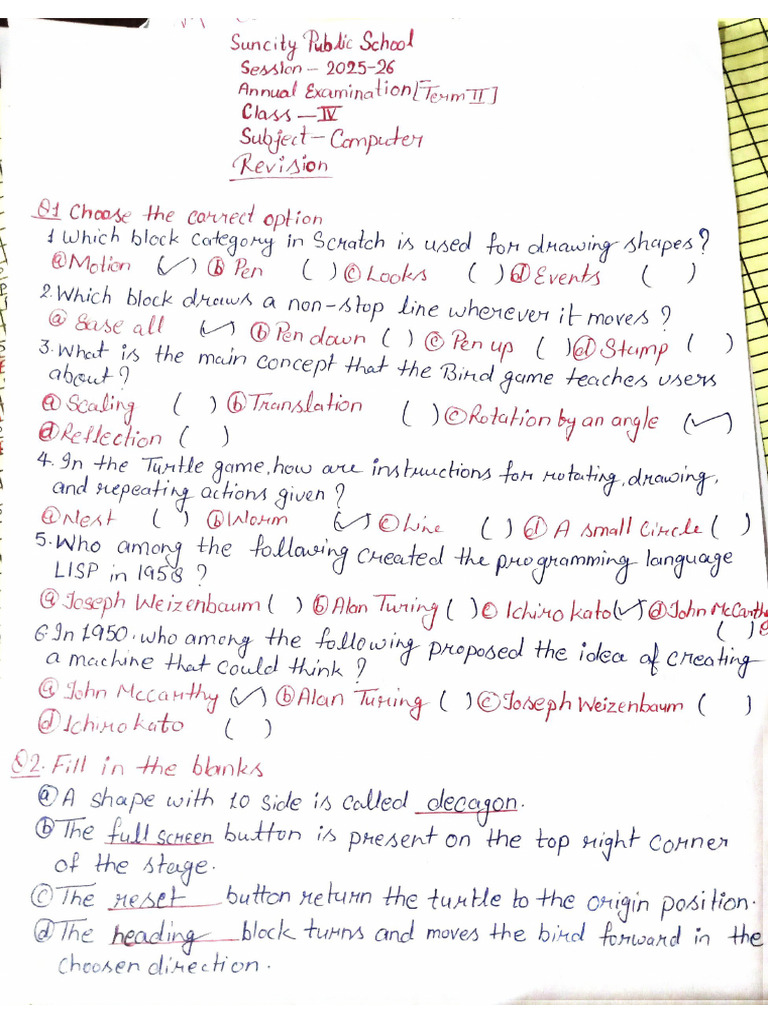 Suncity Public School
Session – 2025-26
Annual Examination [Term II]
Class – IV
Subject – Computer
Revision
Q1 Choose the correct option
1 Which block category in Scratch is used for drawing shapes?
ⓐ Motion (✓) ⓑ Pen ( ) ⓒ Looks ( ) ⓓ Events ( )
2. Which block draws a non-stop line wherever it moves?
ⓐ Sase all (✓) ⓑ Pen down ( ) ⓒ Pen up ( ) ⓓ Stamp ( )
3. What is the main concept that the Bird game teaches users
about?
ⓐ Scaling ( ) ⓑ Translation ( ) ⓒ Rotation by an angle (✓)
ⓓ Reflection ( )
4. In the Turtle game, how are instructions for rotating, drawing,
and repeating actions given?
ⓐ Nest ( ) ⓑ Worm (✓) ⓒ Line ( ) ⓓ A small Circle ( )
5. Who among the following created the programming language
LISP in 1958?
ⓐ Joseph Weizenbaum ( ) ⓑ Alan Turing ( ) ⓒ Ichiro kato (✓) ⓓ John McCarth
( )
6. In 1950, who among the following proposed the idea of creating
a machine that could think?
ⓐ John Mccarthy (✓) ⓑ Alan Turing ( ) ⓒ Joseph Weizenbaum ( )
ⓓ Ichiro kato ( )
Q2. Fill in the blanks
ⓐ A shape with 10 side is called decagon.
ⓑ The full screen button is present on the top right corner
of the stage.
ⓒ The reset button return the turtle to the origin position.
ⓓ The heading block turns and moves the bird forward in the
choosen direction.